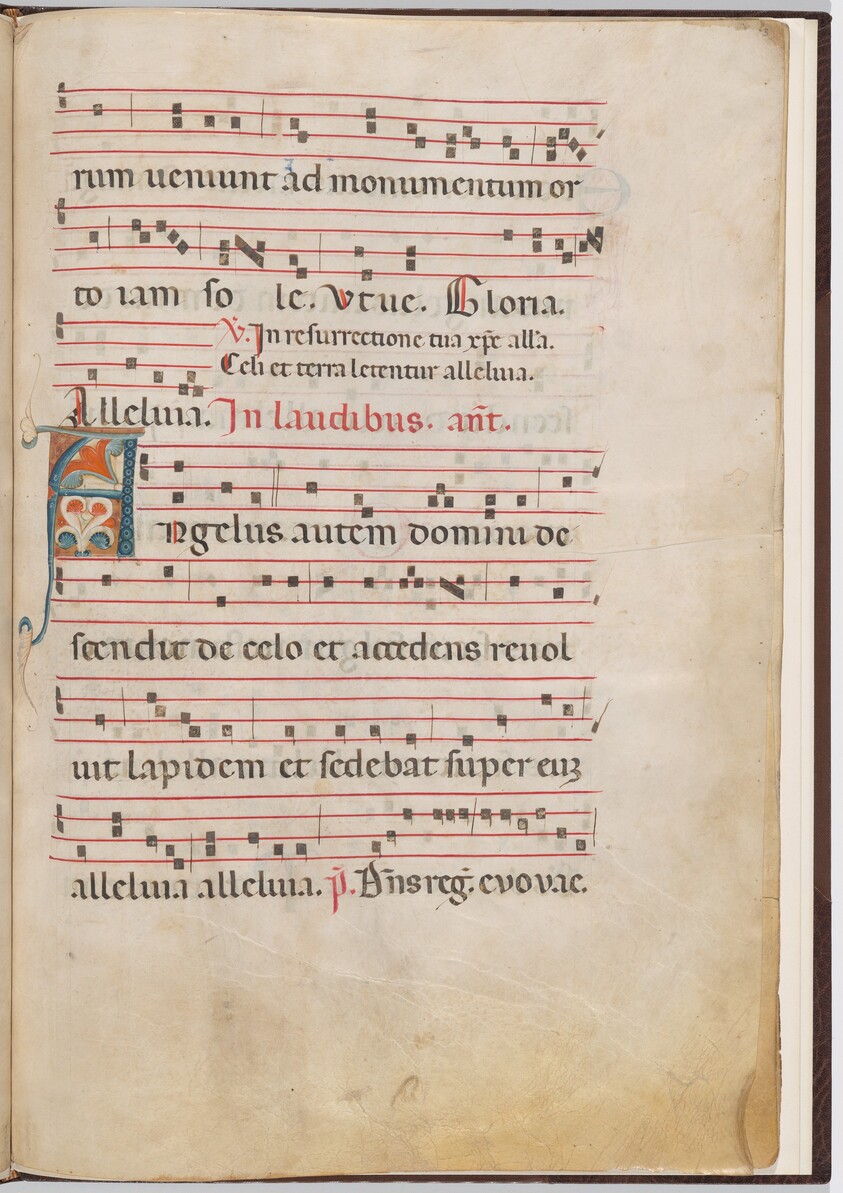 rum ueniunt ad monumentum or
to iam so le. Vt ue. Gloria.
V̄. In resurrectione tua xp̄e all'a.
Celi et terra letentur alleluia.
Alleluia. In laudibus. an̄t.
Angelus autem domini de
scendit de celo et accedens reuol
uit lapidem et sedebat super euꝫ
alleluia alleluia. p̄. Dn̄s reḡ. evovae.